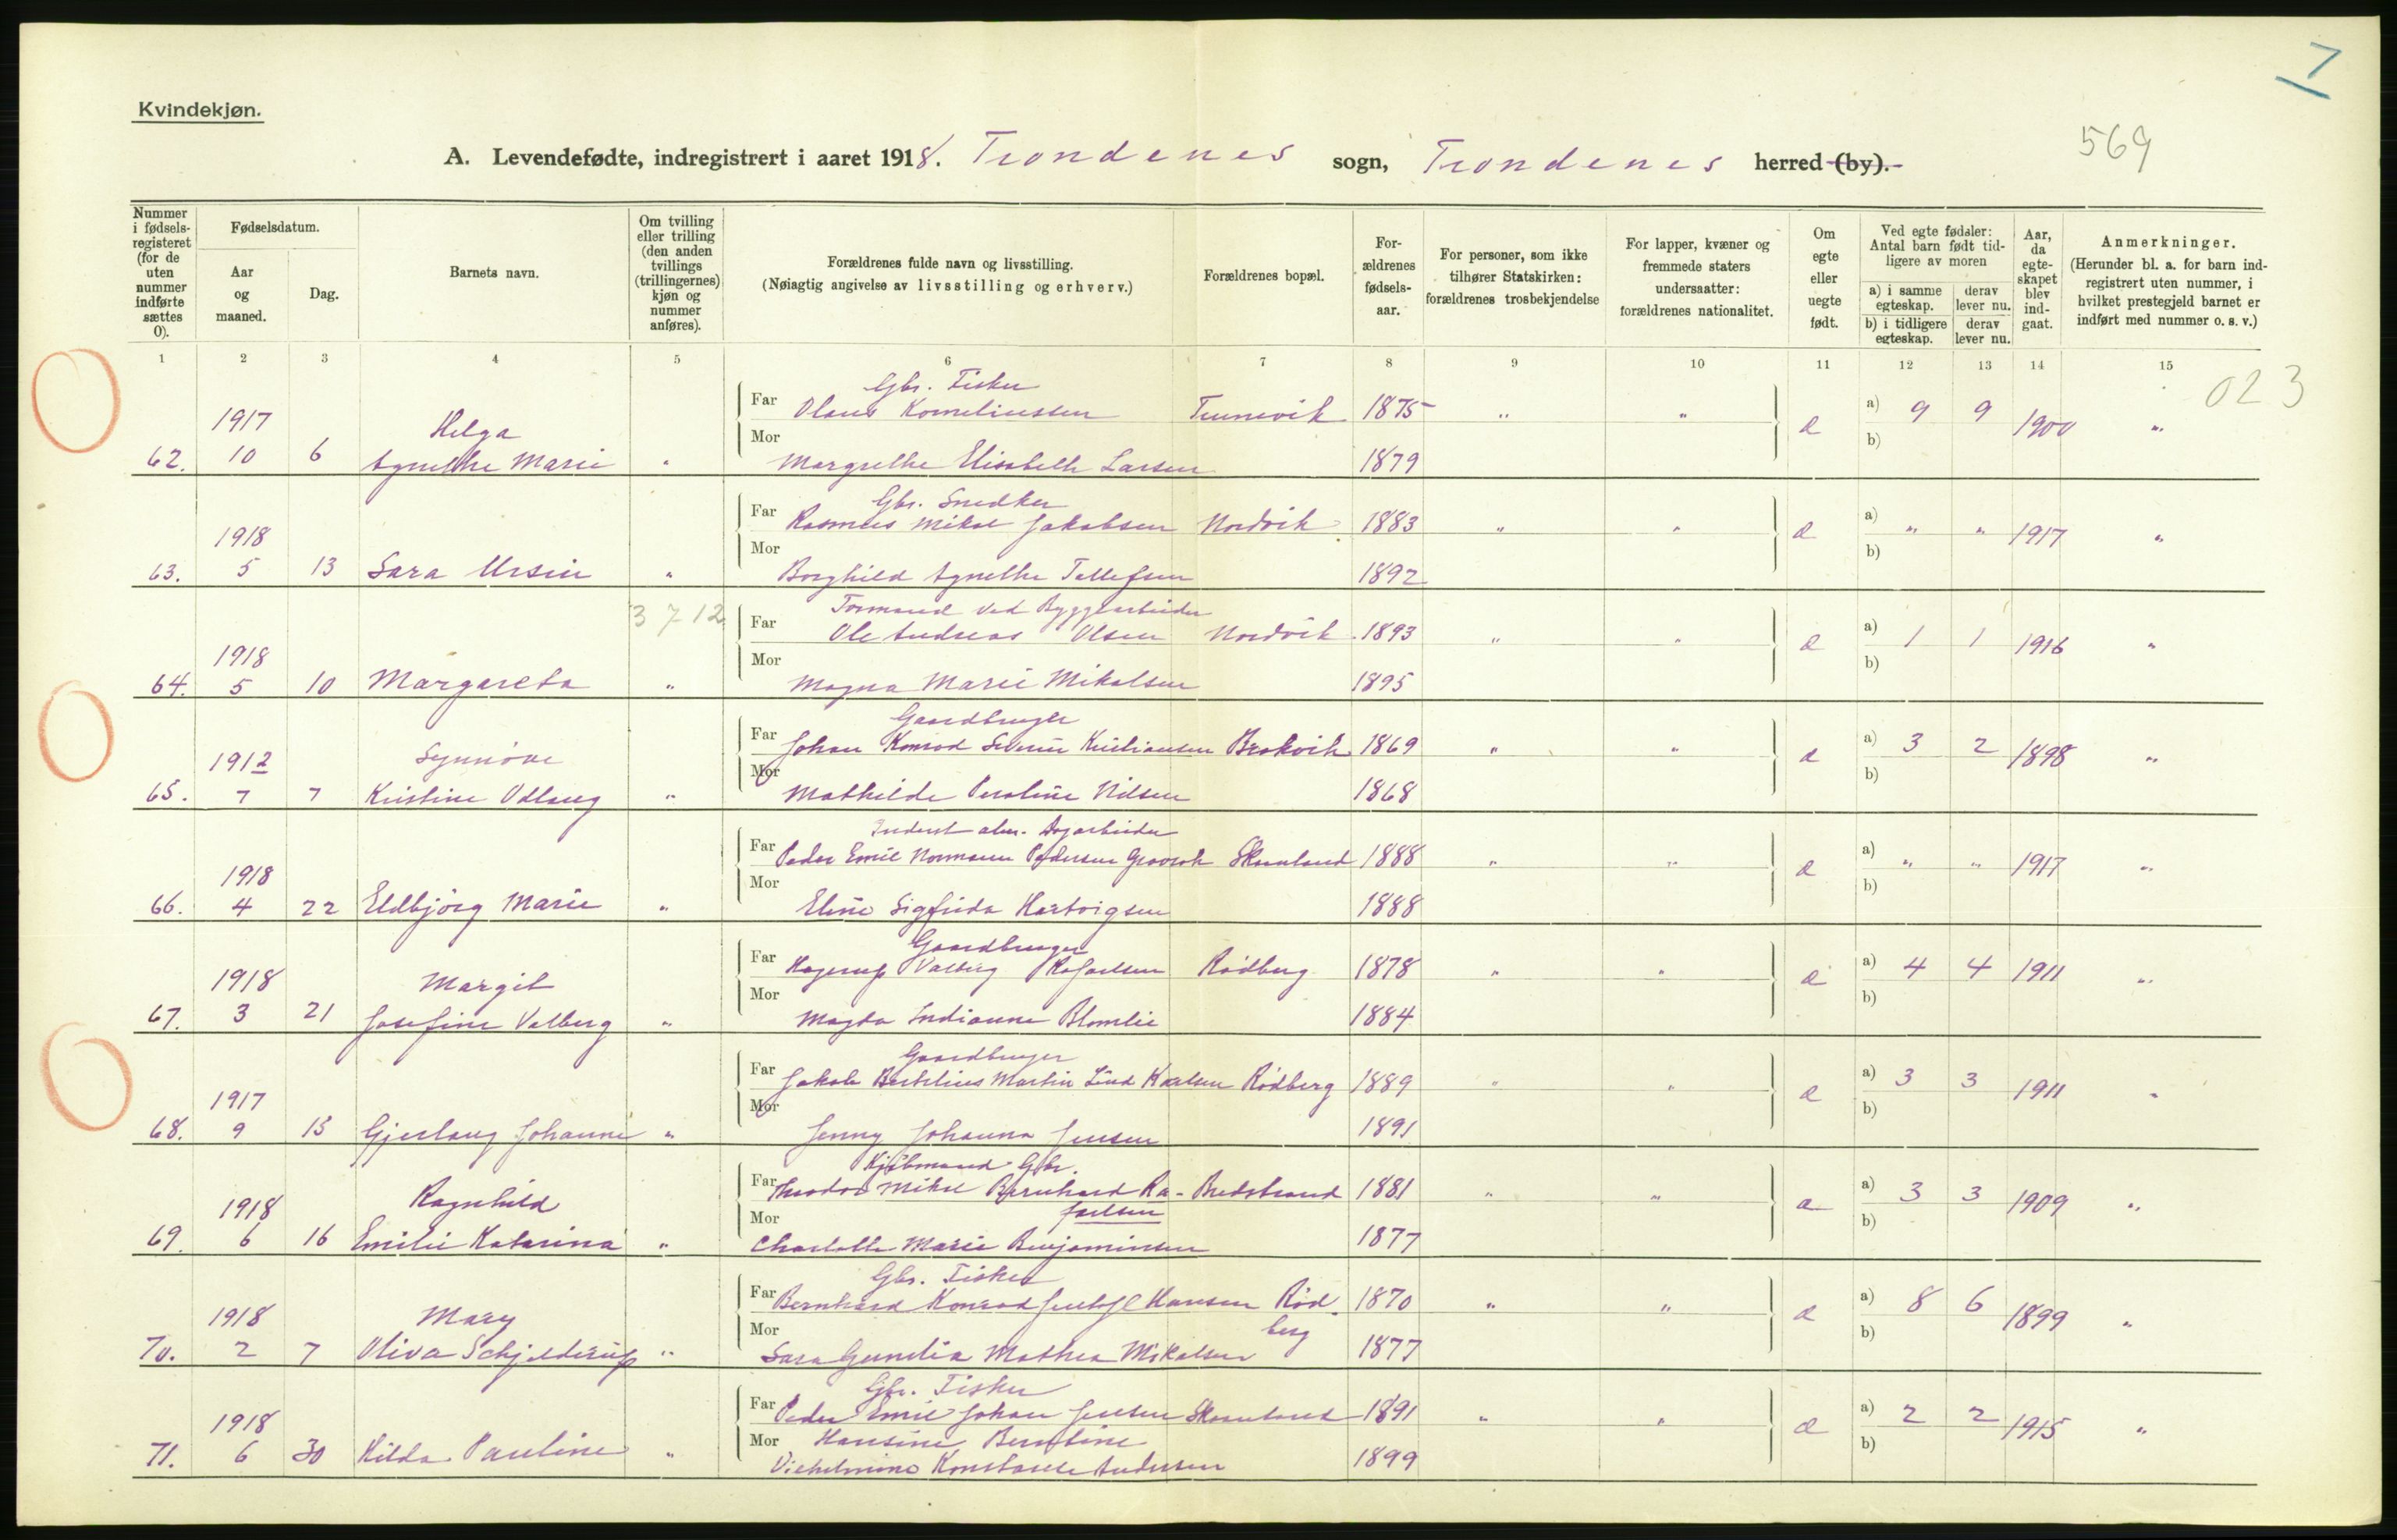 7
Kvindekjøn.
569
A. Levendefødte, indregistrert i aaret 1918. Trondenes sogn, Trondenes herred (by).
Nummer i fødsels-registeret (for de uten nummer indførte sættes 0).
Fødselsdatum.
Aar og maaned.
Dag.
Barnets navn.
Om tvilling eller trilling (den anden tvillings (trillingernes) kjøn og nummer anføres).
Forældrenes fulde navn og livsstilling.
(Nøiagtig angivelse av livsstilling og erhverv.)
Forældrenes bopæl.
For-ældrenes fødsels-aar.
For personer, som ikke tilhører Statskirken: forældrenes trosbekjendelse
For lapper, kvæner og fremmede staters undersaatter: forældrenes nationalitet.
Om egte eller uegte født.
Ved egte fødsler: Antal barn født tid-ligere av moren
a) i samme egteskap. derav lever nu.
b) i tidligere egteskap. derav lever nu.
Aar, da egte-skapet blev ind-gaat.
Anmerkninger.
(Herunder bl. a. for barn ind-registrert uten nummer, i hvilket prestegjeld barnet er indført med nummer o. s. v.)
1 2 3 4 5 6 7 8 9 10 11 12 13 14 15
023
Gbr. Fisker
1917 Helga Far Olaus Korneliussen Tennevik 1875 " " a) 9 9 1900 "
62. 10 6 Agnethe Marie " Mor Margrethe Elisabeth Larsen 1879 b)
Gbr. Snedker
1918 Far Rasmus Mikal Jakobsen Nordvik 1883 " " a) " " 1917 "
63. 5 13 Sara Ursin " Mor Borghild Agnethe Tellefsen 1892 b)
3 7 12
Formand ved Byggearbeider
1918 Far Ole Andreas Olsen Nordvik 1893 " " a) 1 1 1916 "
64. 5 10 Margareta " Mor Magna Marie Mikalsen 1895 b)
Gaardbruger
1912 Synnöve Far Johan Konrad Severin Kristiansen Brokvik 1869 " " a) 3 2 1898 "
65. 7 7 Kristine Odlaug " Mor Mathilde Peroline Nilsen 1868 b)
Inderst alm. Dagarbeider
1918 Far Peder Emil Normann Pedersen Skaanland 1888 " " a) " " 1917 "
66. 4 22 Eldbjörg Marie " Mor Eline Sigfrida Hartvigsen 1888 b)
Gaardbruger
1918 Margit Far Hagerup Valberg Rafaelsen Rödberg 1878 " " a) 4 4 1911 "
67. 3 21 Josefine Valberg " Mor Magda Indianne Blomlie 1884 b)
Gaardbruger
1917 Far Jakob Bertelius Martin Lind Karlsen Rödberg 1889 " " a) 3 3 1911 "
68. 9 13 Gjerlaug Johanne " Mor Jenny Johanna Jensen 1891 b)
Kjöbmand Gbr.
1918 Ragnhild Far Theodor Mikal Bernhard Ra- Bredstrand 1881 " " a) 3 3 1909 "
faelsen
69. 6 16 Emilie Katarina " Mor Charlotte Marie Benjaminsen 1877 b)
Gbr. Fisker
1918 Mary Far Bernhard Konrad Jentoft Hansen Röd- 1870 " " a) 8 6 1899 "
berg
70. 2 7 Oliva Schjelderup " Mor Sara Gunelia Mathea Mikalsen 1877 b)
Gbr. Fisker
1918 Far Peder Emil Johan Jensen Skaanland 1891 " " a) 2 2 1915 "
Mor Hansine Berntine
71. 6 30 Hilda Pauline " Vilhelmine Konstanse Andersen 1899 b)